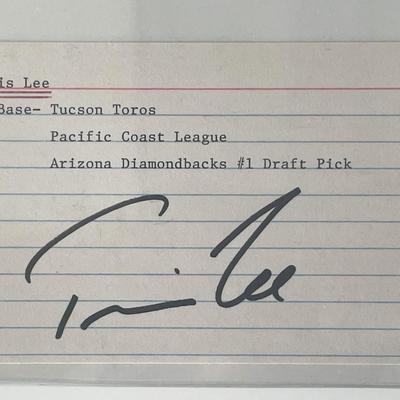 is Lee
Base- Tucson Toros
Pacific Coast League
Arizona Diamondbacks #1 Draft Pick
Travis Lee